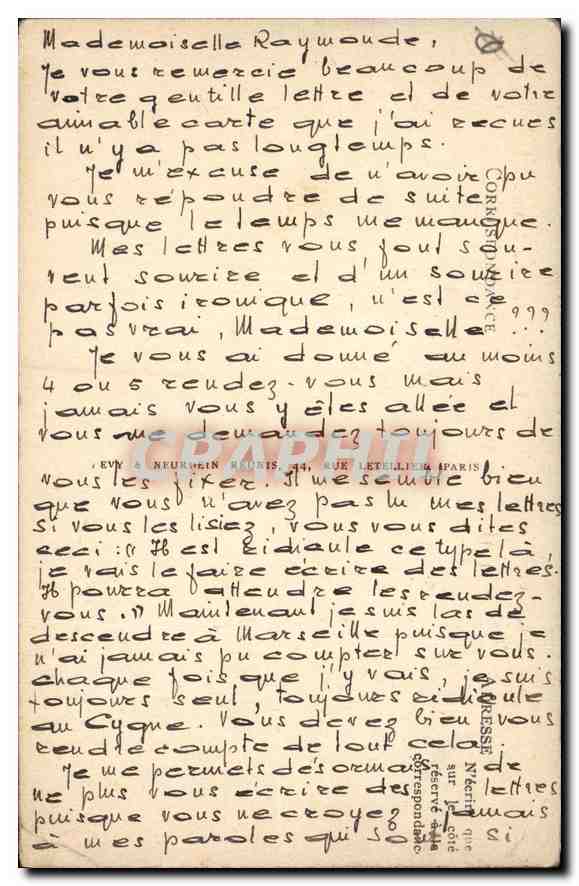 Mademoiselle Raymonde,
Je vous remercie beaucoup de
votre gentille lettre et de votre
aimable carte que j'ai recues
il n'y a pas longtemps.
Je m'excuse de n'avoir pu
vous répondre de suite
puisque le temps me manque.
Mes lettres vous font sou-
vent sourire et d'un sourire
parfois ironique, n'est ce
pas vrai, Mademoiselle ???
Je vous ai donné au moins
4 ou 5 rendez-vous mais
jamais vous y êtes allée et
vous me demandez toujours de
CRAPHIL
EVY & NEURDEIN RÉUNIS, 44, RUE LETELLIER, PARIS
vous les fixer. Il me semble bien
que vous n'avez pas lu mes lettres
Si vous les lisiez, vous vous dites
ceci : « Il est ridicule ce type là,
je vais le faire écrire des lettres.
Il pourra attendre les rendez-
vous.» Maintenant je suis las de
descendre à Marseille puisque je
n'ai jamais pu compter sur vous.
chaque fois que j'y vais, je suis
toujours seul, toujours ridicule
au Cygne. Vous devez bien vous
rendre compte de tout cela.
Je me permets désormais de
ne plus vous écrire des lettres
puisque vous ne croyez jamais
à mes paroles qui sont si
CORRESPONDANCE
ADRESSE
N'écrire que
sur le côté
réservé à la
correspondance